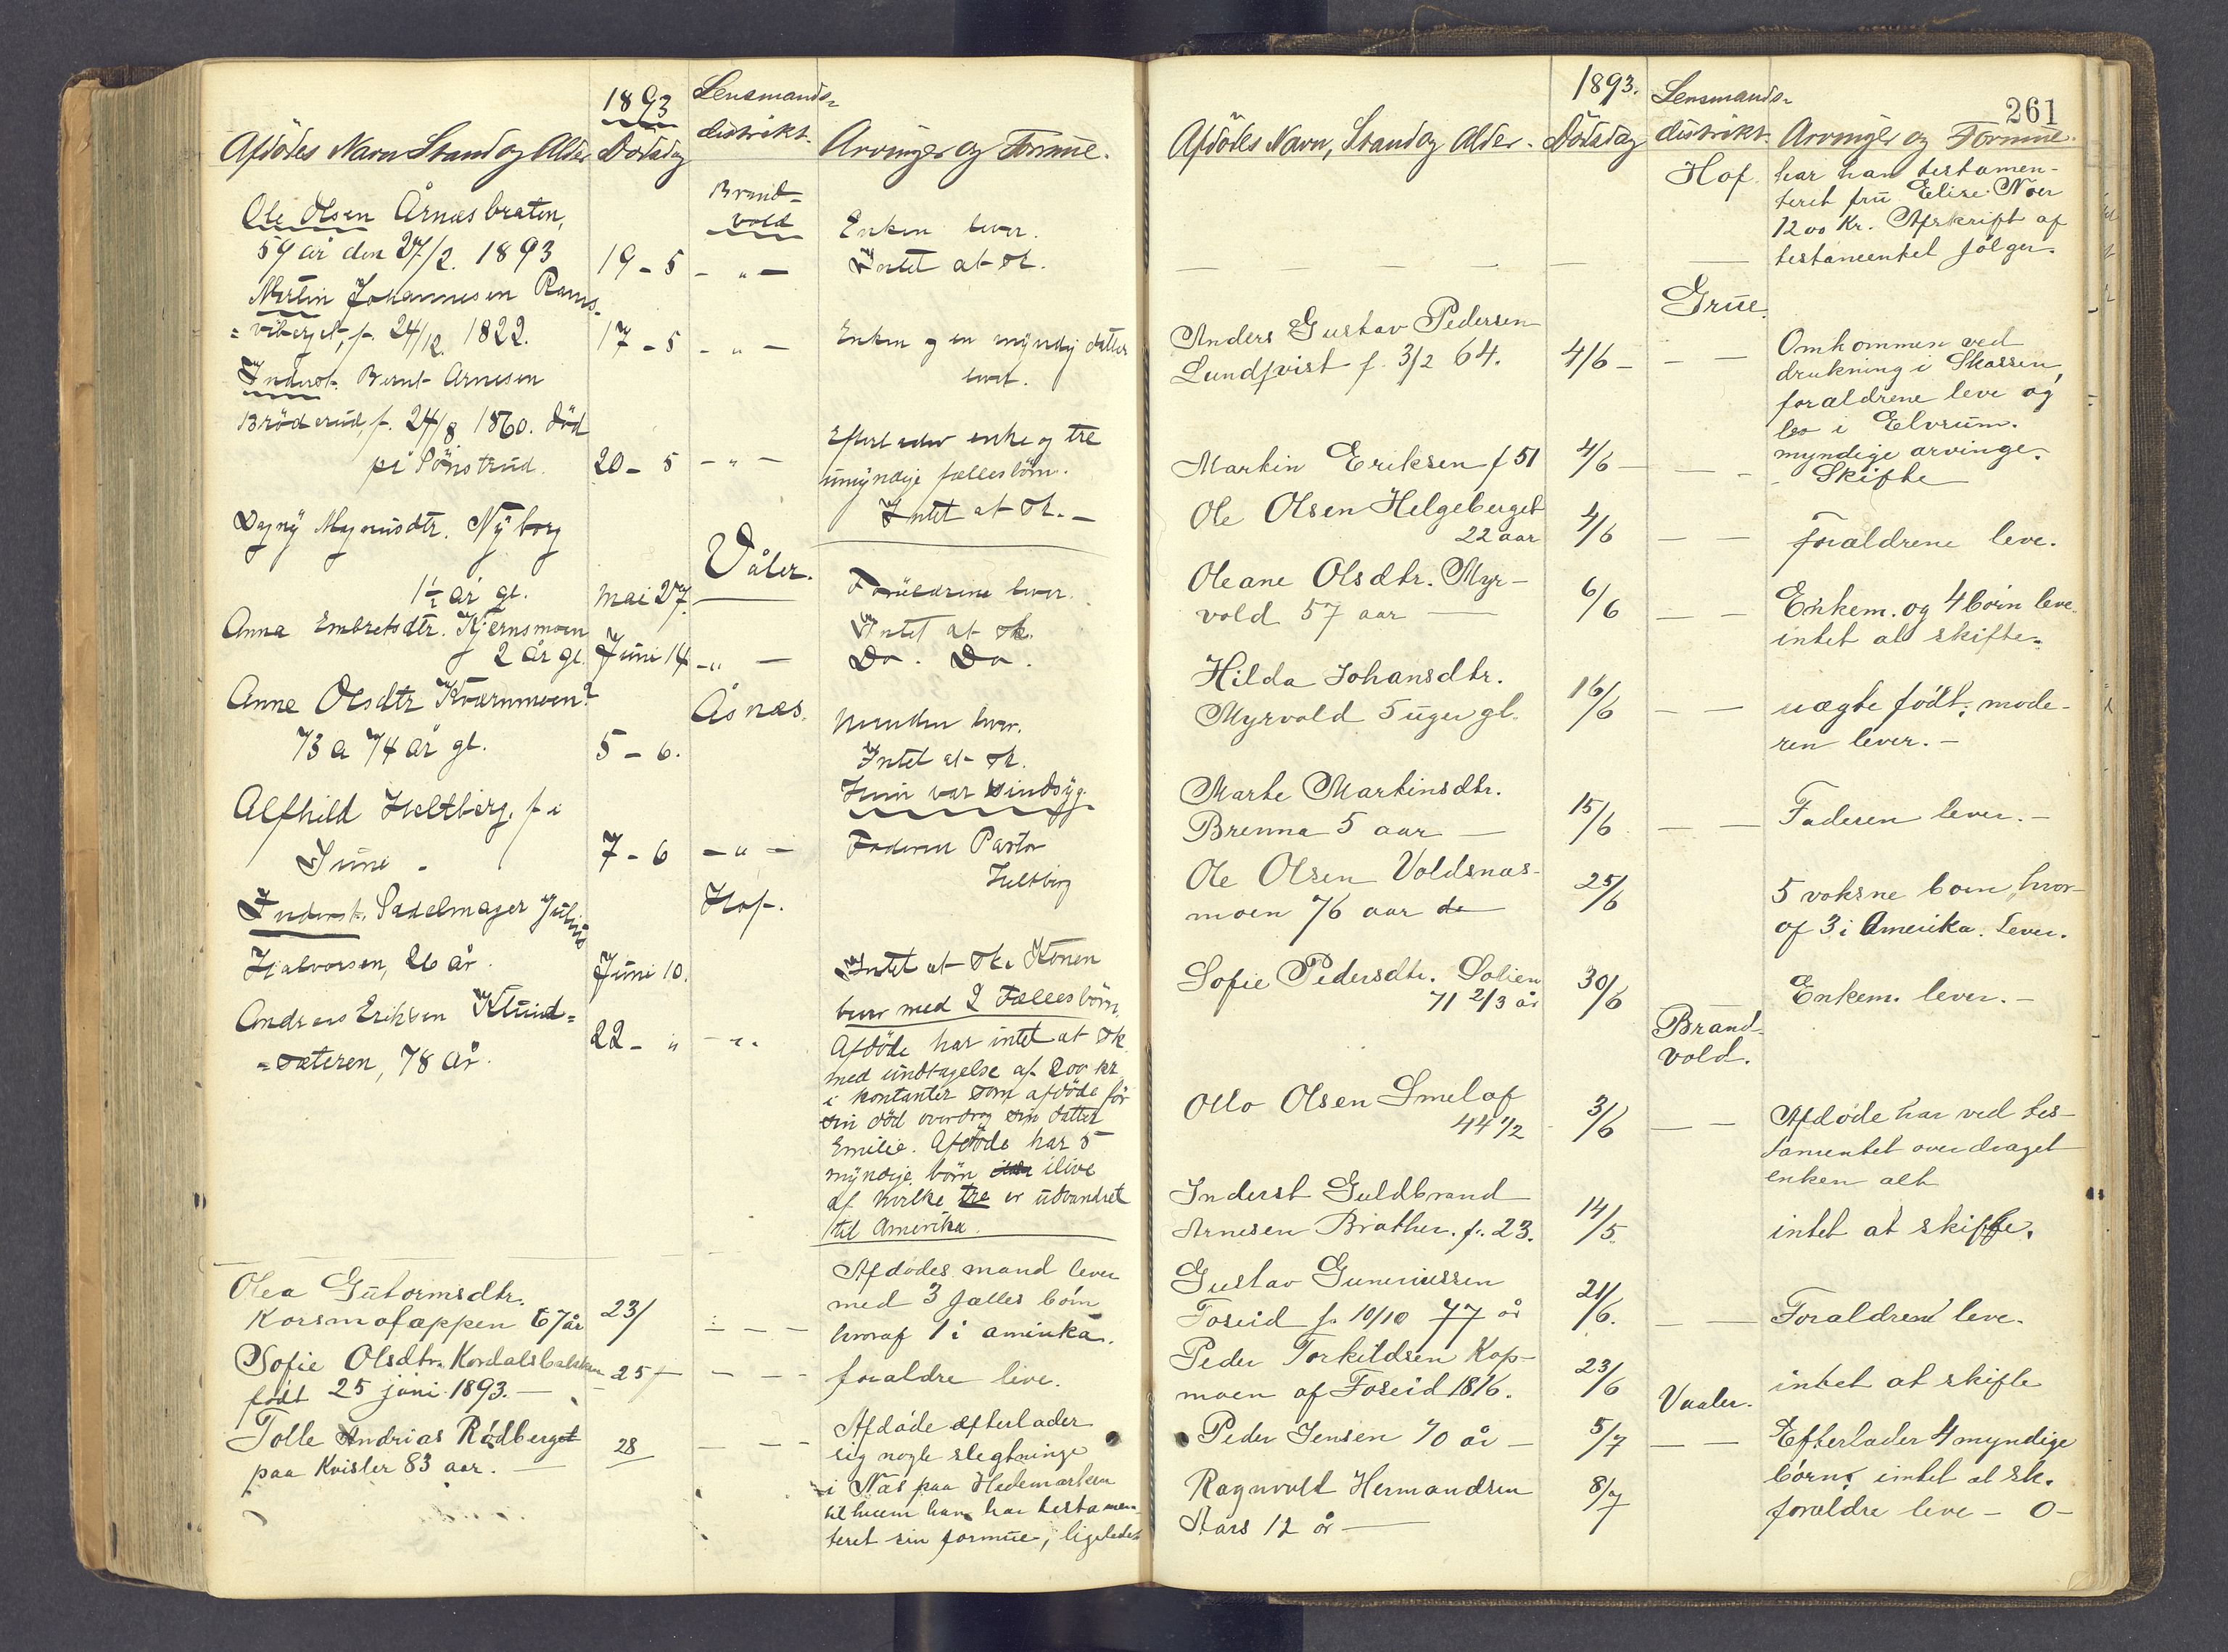 1893
Lensmands-
distrikt.
Afdödes Navn Stand og Alder
Dödsdag
Arvinger og Formue.
Brand-
vold
Ole Olsen Årnæsbraten,
59 år den 27/2. 1893
19 - 5
- „ -
Enken lever.
Intet at sk.
Martin Johannesen Rams-
= viberget, f. 24/12. 1822.
17 - 5
- „ -
Enken og en myndig datter
lever.
Inderst. Bernt Arnesen
Bröderud, f. 24/8. 1860. död
på Sönstrud.
20 - 5
- „ -
Efterlader enke og tre
umyndige fællesbörn.
Intet at sk. -
Dagny Magnusdtr. Nyborg
1½ år gl.
Mai 27.
Våler.
Forældrene lever.
Intet at sk.
Anna Embretsdtr. Kjernsmoen
2 år gl.
Juni 14
- „ -
Do. Do.
Anne Olsdtr Kværnmoen?
73 a 74 år gl.
5 - 6.
Åsnæs.
Manden lever.
Intet at sk.
Hun var sindsyg.
Alfhild Heltberg. f i
June -
7 - 6
- „ -
Faderen Pastor
Heltberg
Inderst. Sadelmager Julius
Halvorsen, 26 år.
Juni 10.
Hof.
Intet at sk. Konen
lever med 2 Fællesbörn.
Andreas Eriksen Klund=
=sæteren, 78 år.
22 - „
- „ -
Afdöde har intet at sk
med undtagelse af 200 kr
i kontanter som afdöde för
sin död overdrog sin datter
Emilie. Afdöde har 5
myndige börn ilive
af hvilke tre er utvandret
til Amerika.
Olea Gutormsdtr.
Korsmofæppen 67 år
23/
Afdödes mand lever
med 3 fælles börn
hvoraf 1 i amirika.
Sofie Olsdtr. Kordalsbakken
født 25 juni 1893. -
25/
- - -
foraldre leve.
Tolle Andrias Rødberget
paa Kvisler 83 aar. -
28
- - -
Afdøde efterlader
sig nogle slegtninge
i Næs paa Hedemarken
til hvem han har testamen-
teret sin formue, ligeledes
1893.
Lensmands-
261
Afdødes Navn, Stand og Alder.
Dödsdag
distrikt.
Arvinger og Formue.
Hof.
har han testamen-
teret fru Elise Noer
1200 Kr. Afskrift af
testamentet følger.
Grue.
Anders Gustav Pedersen
Lundqvist f. 3/2 64.
4/6 -
- -
Omkommen ved
drukning i Skassen,
foraldrene leve og
bo i Elvrum.
Martin Eriksen f 51
4/6 -
- -
myndige arvinge.
- Skifte
Ole Olsen Helgeberget
22 aar
4/6
- -
foraldrene leve.
Oleane Olsdtr. Myr-
vold 57 aar -
6/6
- -
Enkem. og 4 börn leve.
intet at skifte.
Hilda Johansdtr.
Myrvold 5 uger gl.
16/6
- -
uægte födt; mode-
ren lever. -
Marte Martinsdtr.
Brenna 5 aar -
15/6
- -
Faderen lever. -
Ole Olsen Voldsnæs-
moen 76 aar
25/6
5 voksne börn, hvor-
af 3 i Amerika. lever.
Sofie Pedersdtr. Solien
71 2/3 år
30/6
Enkem. lever. -
Brand-
vold.
Otto Olsen Smelof
44 1/2
3/6
- -
Afdøde har ved tes-
tamentet overdraget
enken alt
Inderst Guldbrand
Arnesen Bråthen. f. 23.
14/5.
intet at skifte.
Gustav Gunerussen
Foseid f. 10/10 77 år
21/6.
- -
Foraldrene leve.
Peder Torkildsen Kop-
moen af Foseid 1816.
23/6
intet at skifte
Vaaler.
Peder Jensen 70 år -
5/7
- -
Efterlader 4 myndige
börn; intet at sk.
Ragnvald Hermandsen
Aars 12 år -
8/7
foraldre leve - 0 -